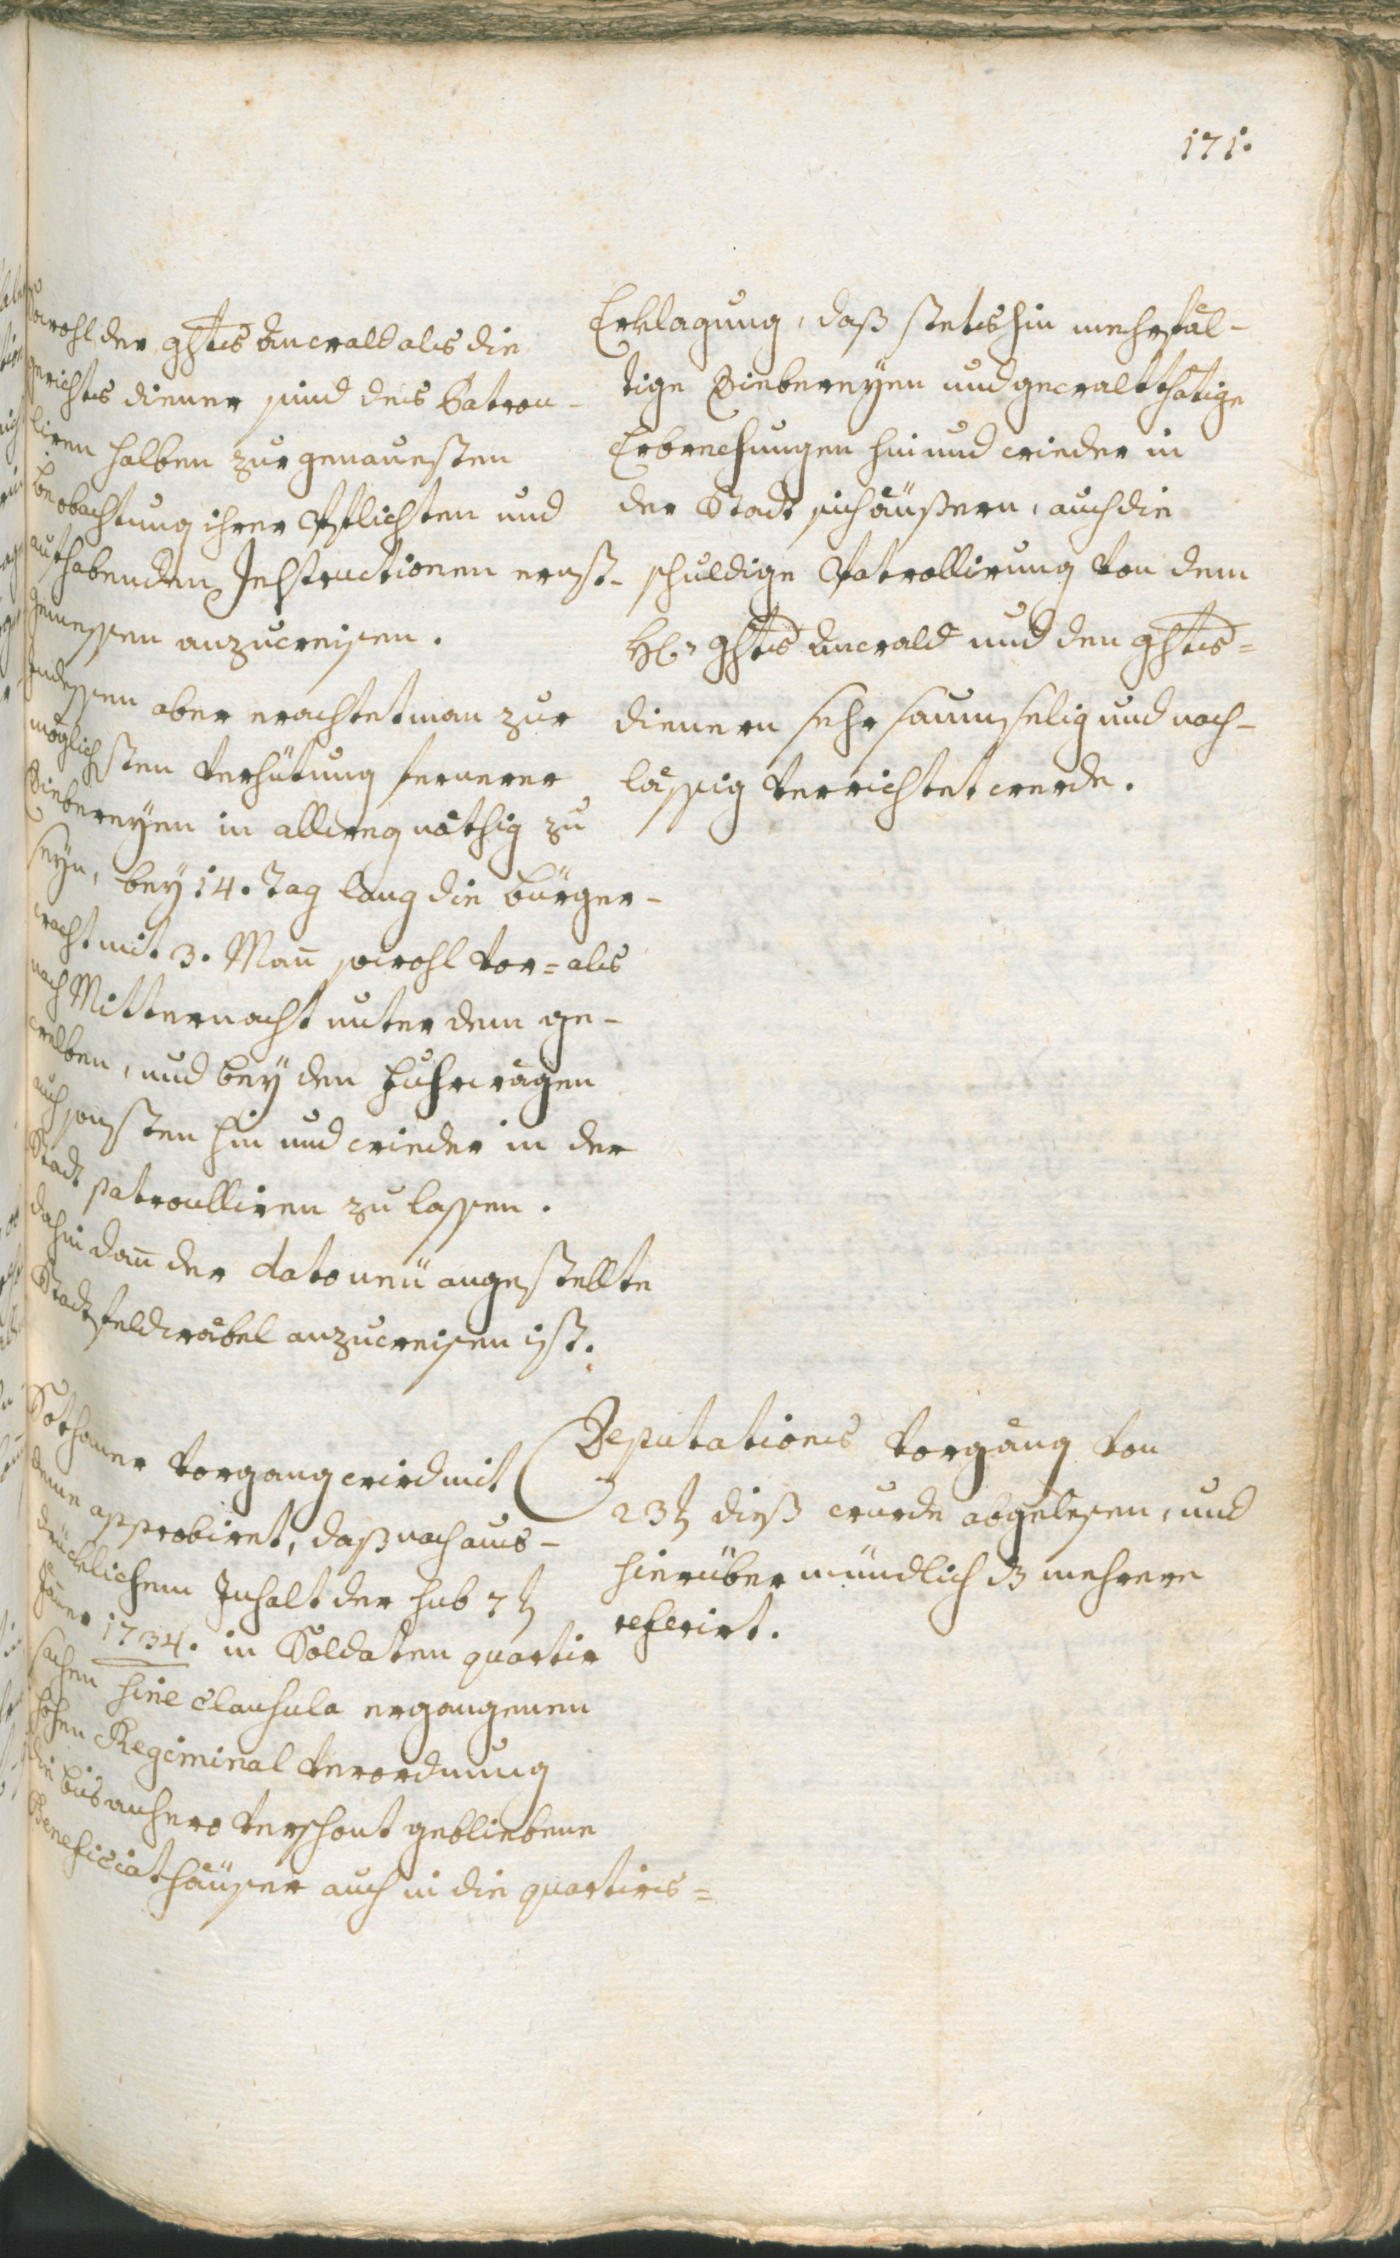 171.
Sowohl der ghts anwald als die
gerichts diener sind des Patrou-
liren halben zur genauesten
beobachtung ihrer Pflichten und
aufhabenden Instructionen ernst-
gemessen anzuweisen.
Indessen aber erachtet man zur
möglichsten Verhütung fernerer
Diebereyen in allweg nöthig zu
seyn, bey 14. Tag lang die bürger-
wacht mit 3. Man̄ sowohl vor- als
nach Mitternacht unter dem ge-
welben, und bey den Fuhrwägen
auch sonsten hin und wieder in der
Stadt patroulliren zu lassen.
dahin dan̄ der dato neü angestellte
Stadtfeldwäbel anzuweisen ist.
Sothaner Vorgang wird mit
deme approbiret, daß nach aus-
drücklichem Inhalt der sub 7ᵗ
Jäner 1734. in Soldaten quartir
sachen sine clausula ergangenen
hohen Regiminal Verordnung
die bis anhero verschont gebliebene
Beneficiat häuser auch in die quartirs=
Erklagung, daß stetshin mehrfäl-
tige Diebereyen und gewaltthätige
Erbrechungen hin und wieder in
der Stadt sich äußern, auch die
schuldige Patrollirung von dem
H: ghts anwald und den ghts=
dienern sehr saumselig und nach-
lässig verrichtet werde.
Deputations Vorgang von
23ᵗ dieß wurde abgelesen, und
hierüber mündlich mehrere
referirt.